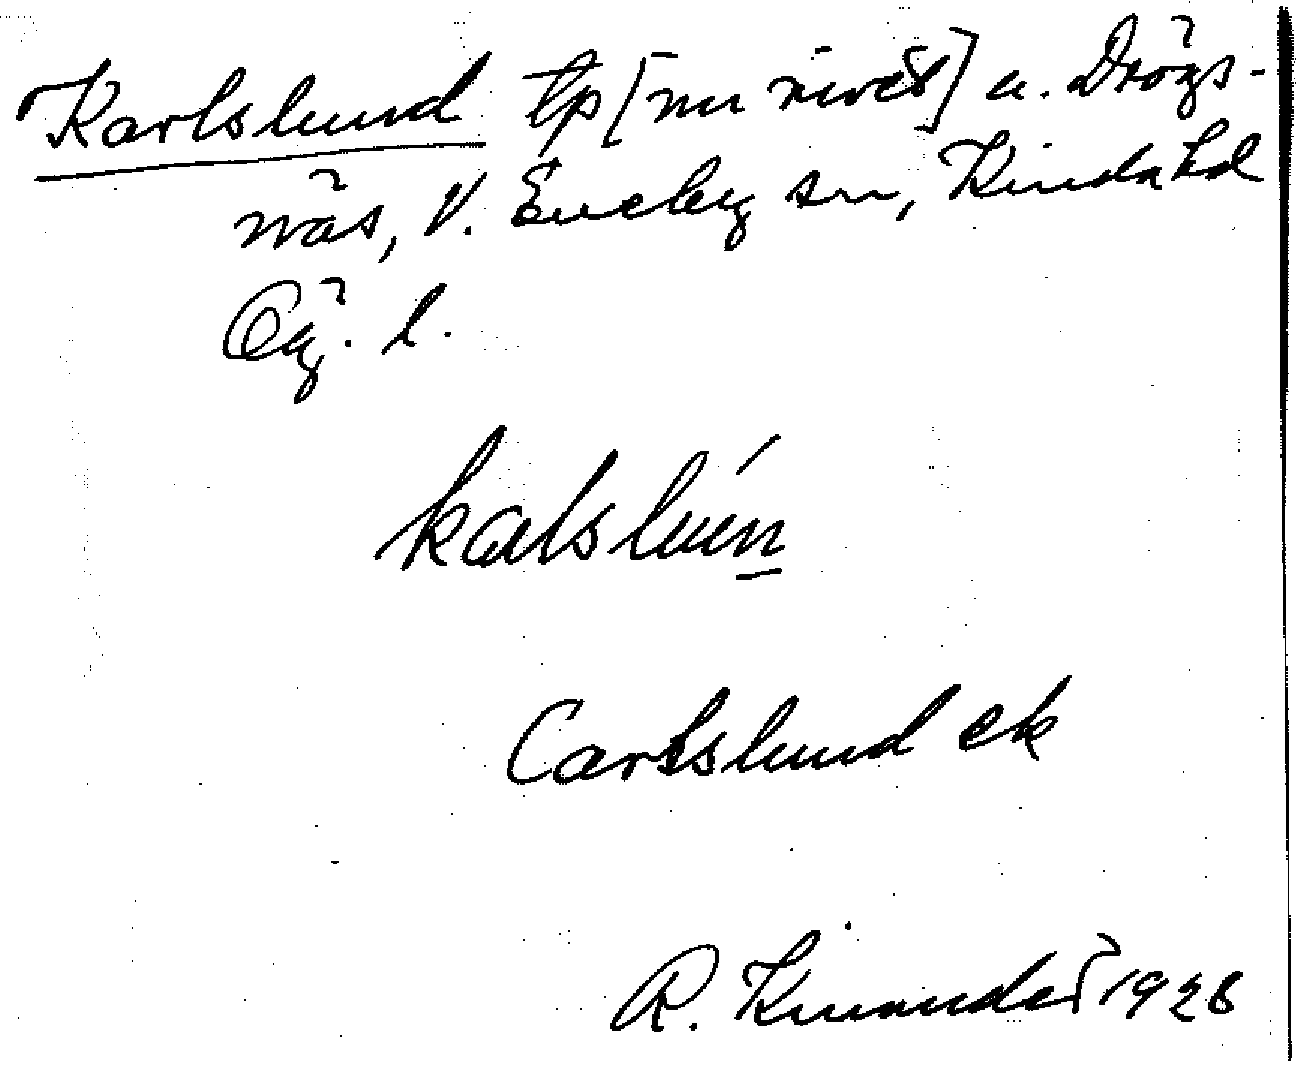 Karlslund tp [nu rivet] u. Drögs-
näs, V. Eneby sn, Kinda hd
Ög. l.
kalslu´n
Carlslund ek
R. Kinander 1928